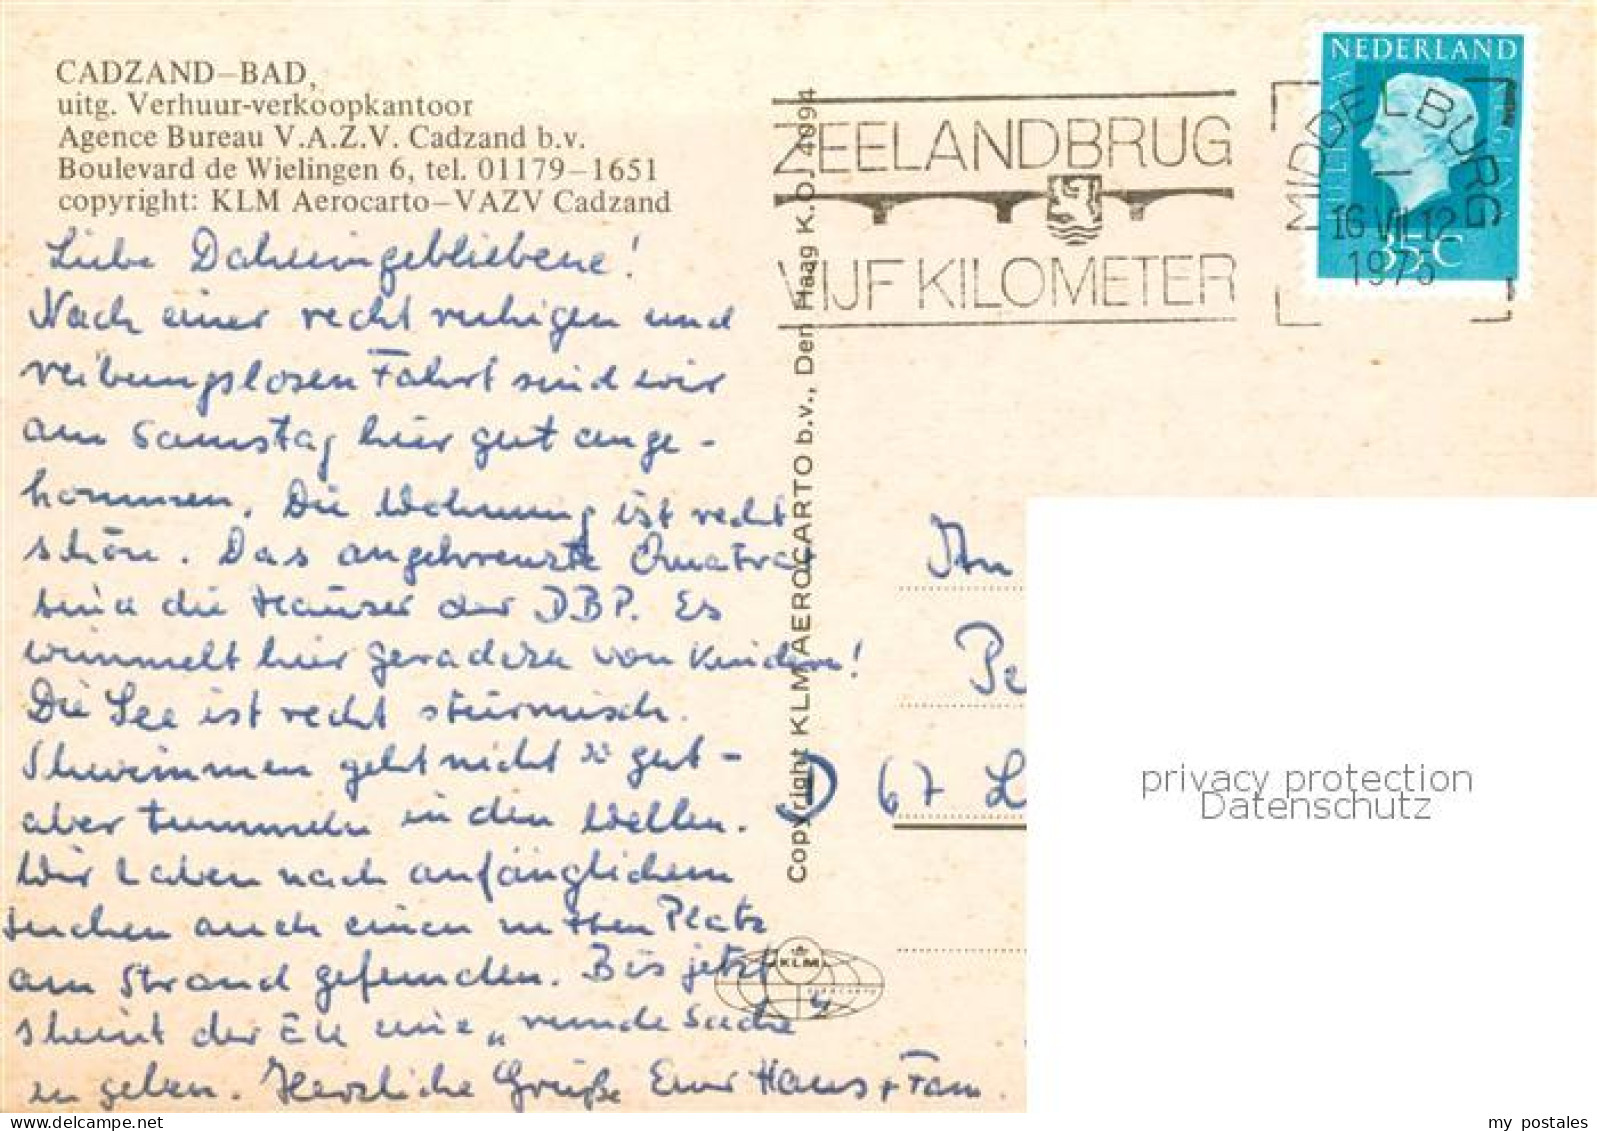 CADZAND–BAD,
uitg. Verhuur-verkoopkantoor
Agence Bureau V.A.Z.V. Cadzand b.v.
Boulevard de Wielingen 6, tel. 01179–1651
copyright: KLM Aerocarto–VAZV Cadzand
Liebe Daheimgebliebene!
Nach einer recht ruhigen und
reibungslosen Fahrt sind wir
am Samstag hier gut ange-
kommen. Die Wohnung ist recht
schön. Das angekreuzte Quadrat
sind die Häuser der DBP. Es
wimmelt hier geradezu von Kindern!
Die See ist recht stürmisch.
Schwimmen geht nicht so gut –
aber tummeln in den Wellen.
Wir haben nach anfänglichem
suchen auch einen netten Platz
am Strand gefunden. Bis jetzt
scheint der eine „runde Sache
zu geben. Herzliche Grüße Euer Hans + Fam.
Copyright KLM AEROCARTO b.v., Den Haag K.O. 4094
KLM
AEROCARTO
ZEELANDBRUG
VIJF KILOMETER
MIDDELBURG
16 VII 12
1975
NEDERLAND
JULIANA REGINA
35C
An
Pe
D 67 L
privacy protection
Datenschutz
my postales